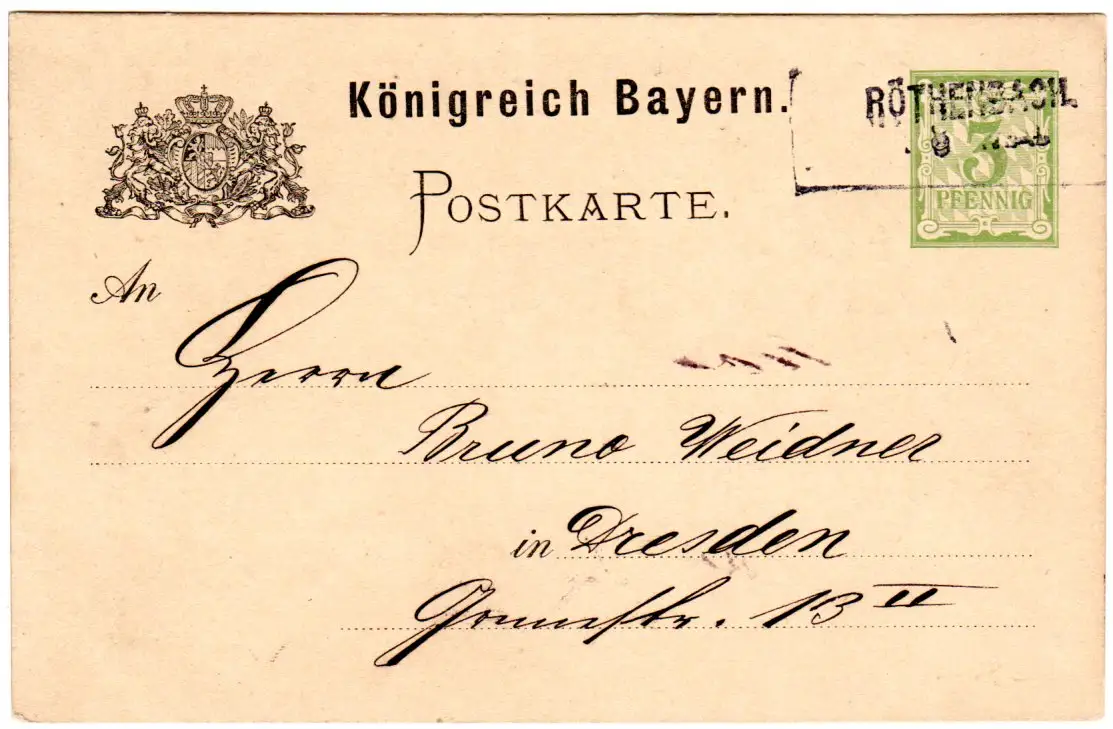 Königreich Bayern.
RÖTHENBACH.
3
PFENNIG
POSTKARTE.
An
Herrn
Bruno Weidner
in Dresden
13 II